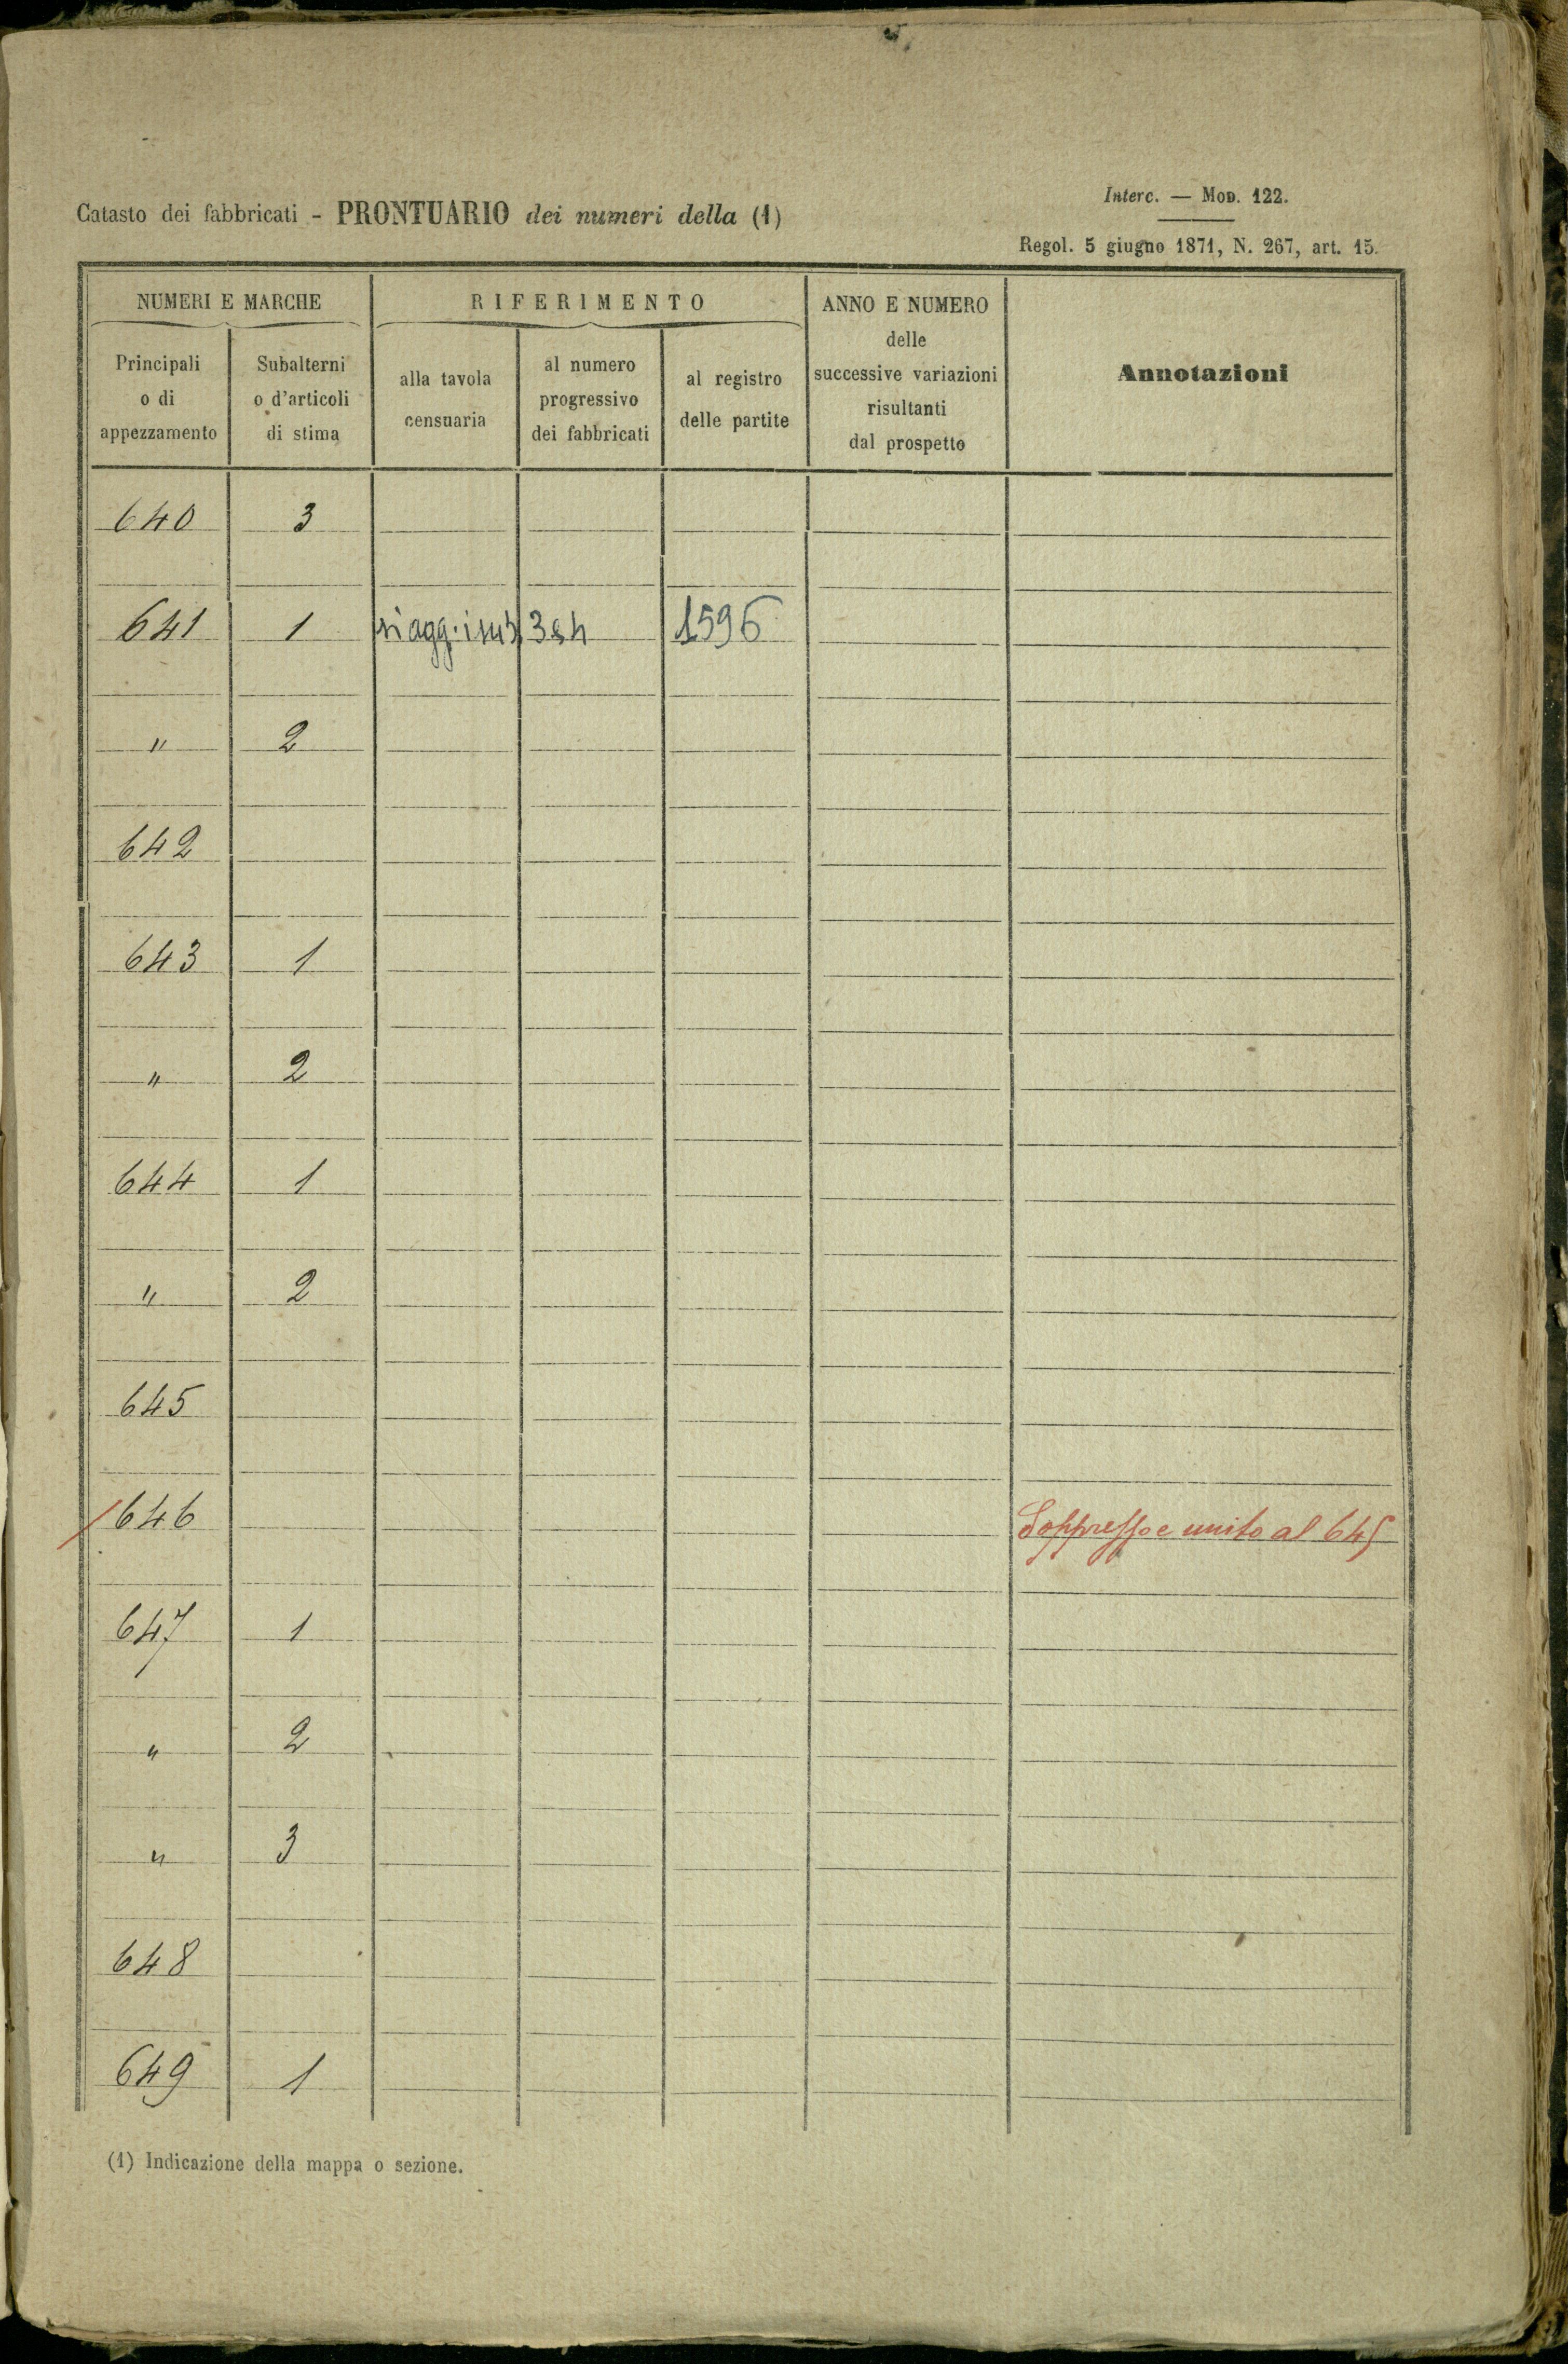 Interc. — Mod. 122.
Catasto dei fabbricati - PRONTUARIO dei numeri della (1)
Regol. 5 giugno 1871, N. 267, art. 15.
NUMERI E MARCHE
Principali
o di
appezzamento
Subalterni
o d'articoli
di stima
RIFERIMENTO
alla tavola
censuaria
al numero
progressivo
dei fabbricati
al registro
delle partite
ANNO E NUMERO
delle
successive variazioni
risultanti
dal prospetto
Annotazioni
640 3
641 1 si agg. i sub. 3 1596
" 2
642
643 1
" 2
644 1
" 2
645
646 Soppresso e unito al 645
647 1
" 2
" 3
648
649 1
(1) Indicazione della mappa o sezione.